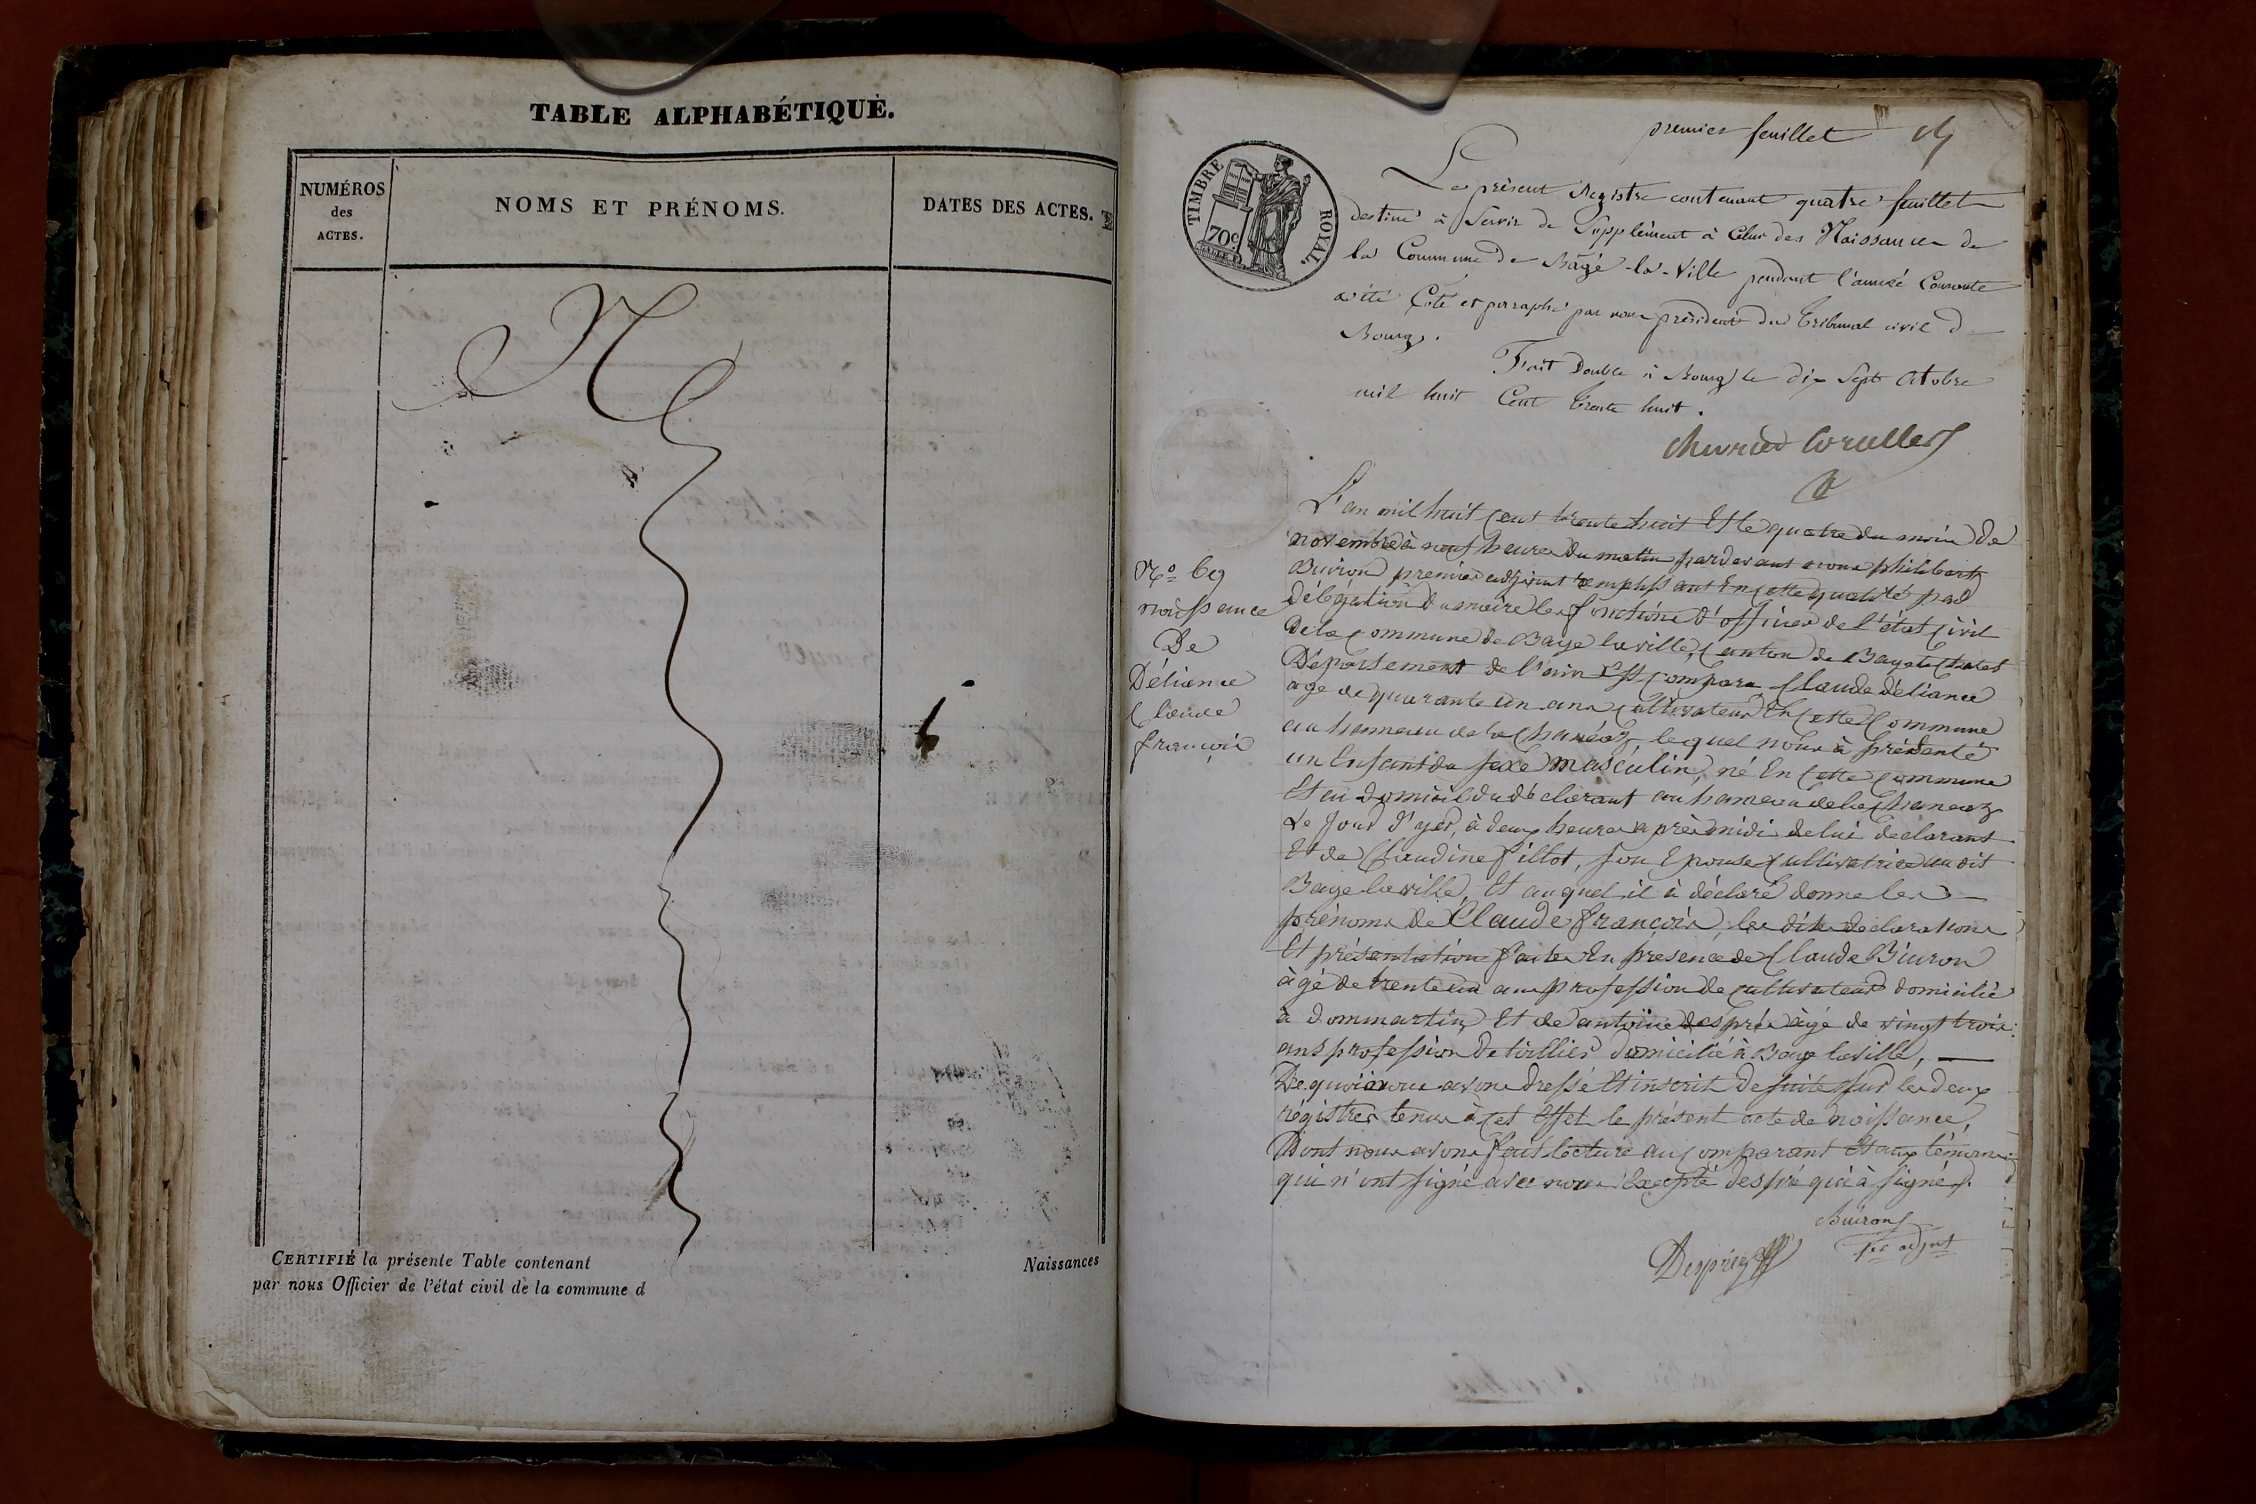 TABLE ALPHABÉTIQUE.
NUMÉROS
des
ACTES.
NOMS ET PRÉNOMS.
DATES DES ACTES.
CERTIFIÉ la présente Table contenant
Naissances
par nous Officier de l'état civil de la commune d
premier feuillet
TIMBRE ROYAL
70c
Le présent Registre contenant quatre feuillets
destiné à Servir de Supplément à Celui des Naissances de
la Commune de Bâgé-la-Ville pendant l'année Courante
a été Coté et paraphé par nous président du Tribunal civil de
Bourg.
Fait Double à Bourg le dix Sept Octobre
mil huit Cent trente huit.
L'an mil huit cent trente huit Et le quatre du mois De
novembre à neuf heures Du matin pardevant nous philibert
Buiron premier adjoint remplissant En cette qualité par
Délégation du maire les fonctions d'officier de l'état civil
De la commune de Bage la ville, canton de Bage le Chatel
Département de l'ain Est comparu Claude Déliance
age de quarante un ans cultivateur En cette commune
au hammeau de la Chanéaz lequel nous à présenté
un Enfant du sexe masculin, né En cette commune
Et au domicil du déclarant au hameau de la Chaneaz
Le jour d'yer, à deux heures après midi de lui declarant
Et de Claudine Pillot, son Epouse cultivatrice au dit
Bage la ville, Et auquel il à déclaré donner les
prénoms de Claude françois, les dites declarations
Et présentation faites En presence de Claude Buiron
àgé de trente un ans profession de cultivateur domicilié
à dommartin, Et de antoine després àgé de vingt trois
ans profession De tuillier domicilié à Bage la ville,
De quoi nous avons dressé Et inscrit De suite sur les deux
régistres tenus à cet Effet le présent acte de naissance,
Dont nous avons fait lecture au comparant Et aux témoins
qui n'ont signé avec nous Excepté despré qui à signé.
Buiron
1er adjoint
Després
No 69
naissance
De
Déliance
Claude
françois